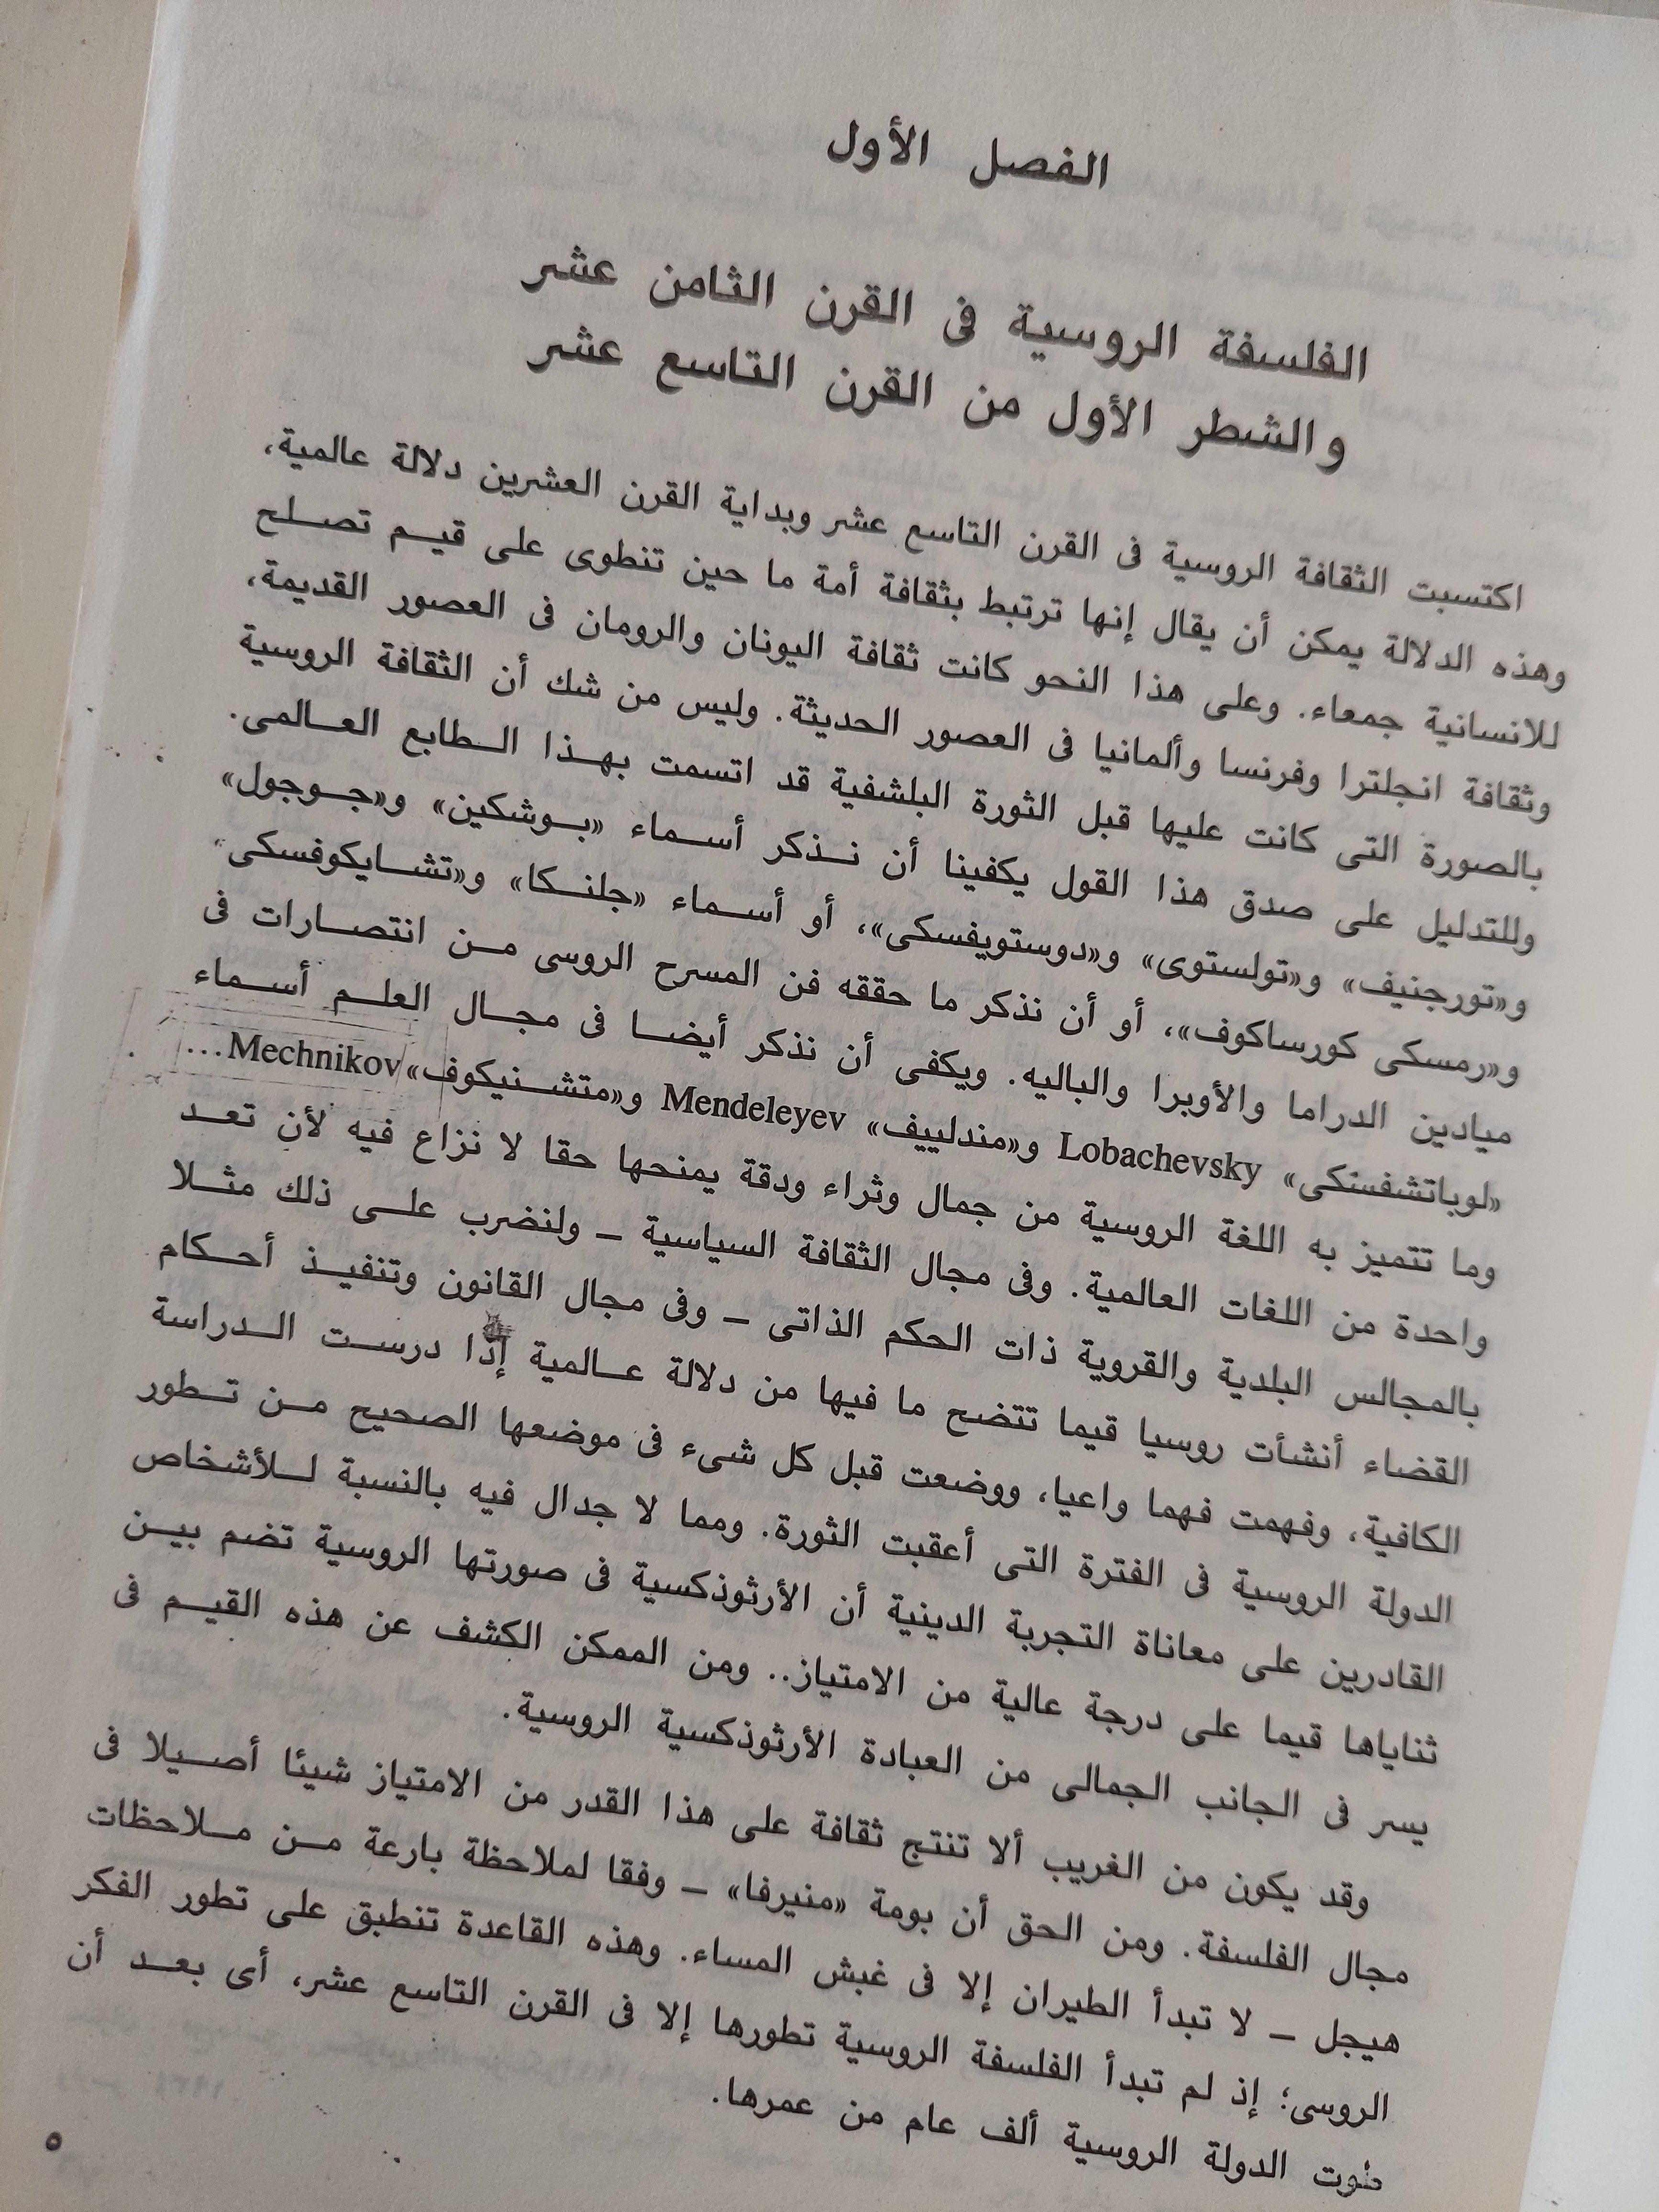 الفصل الأول
الفلسفة الروسية فى القرن الثامن عشر
والشطر الأول من القرن التاسع عشر
اكتسبت الثقافة الروسية فى القرن التاسع عشر وبداية القرن العشرين دلالة عالمية،
وهذه الدلالة يمكن أن يقال إنها ترتبط بثقافة أمة ما حين تنطوى على قيم تصلح
للانسانية جمعاء. وعلى هذا النحو كانت ثقافة اليونان والرومان فى العصور القديمة،
وثقافة انجلترا وفرنسا وألمانيا فى العصور الحديثة. وليس من شك أن الثقافة الروسية
بالصورة التى كانت عليها قبل الثورة البلشفية قد اتسمت بهذا الطابع العالمى.
وللتدليل على صدق هذا القول يكفينا أن نذكر أسماء «بوشكين» و«جوجول»
و«تورجنيف» و«تولستوى» و«دوستويفسكى»، أو أسماء «جلنكا» و«تشايكوفسكى»
و«رمسكى كورساكوف»، أو أن نذكر ما حققه فن المسرح الروسى من انتصارات فى
ميادين الدراما والأوبرا والباليه. ويكفى أن نذكر أيضا فى مجال العلم أسماء
«لوباتشفسكى» Lobachevsky و«مندلييف» Mendeleyev و«متشنيكوف» Mechnikov...
وما تتميز به اللغة الروسية من جمال وثراء ودقة يمنحها حقا لا نزاع فيه لأن تعد
واحدة من اللغات العالمية. وفى مجال الثقافة السياسية – ولنضرب على ذلك مثلا
بالمجالس البلدية والقروية ذات الحكم الذاتى – وفى مجال القانون وتنفيذ أحكام
القضاء أنشأت روسيا قيما تتضح ما فيها من دلالة عالمية إذا درست الدراسة
الكافية، وفهمت فهما واعيا، ووضعت قبل كل شىء فى موضعها الصحيح من تطور
الدولة الروسية فى الفترة التى أعقبت الثورة. ومما لا جدال فيه بالنسبة للأشخاص
القادرين على معاناة التجربة الدينية أن الأرثوذكسية فى صورتها الروسية تضم بين
ثناياها قيما على درجة عالية من الامتياز.. ومن الممكن الكشف عن هذه القيم فى
يسر فى الجانب الجمالى من العبادة الأرثوذكسية الروسية.
وقد يكون من الغريب ألا تنتج ثقافة على هذا القدر من الامتياز شيئا أصيلا فى
مجال الفلسفة. ومن الحق أن بومة «منيرفا» – وفقا لملاحظة بارعة من ملاحظات
هيجل – لا تبدأ الطيران إلا فى غبش المساء. وهذه القاعدة تنطبق على تطور الفكر
الروسى؛ إذ لم تبدأ الفلسفة الروسية تطورها إلا فى القرن التاسع عشر، أى بعد أن
طوت الدولة الروسية ألف عام من عمرها.
٥